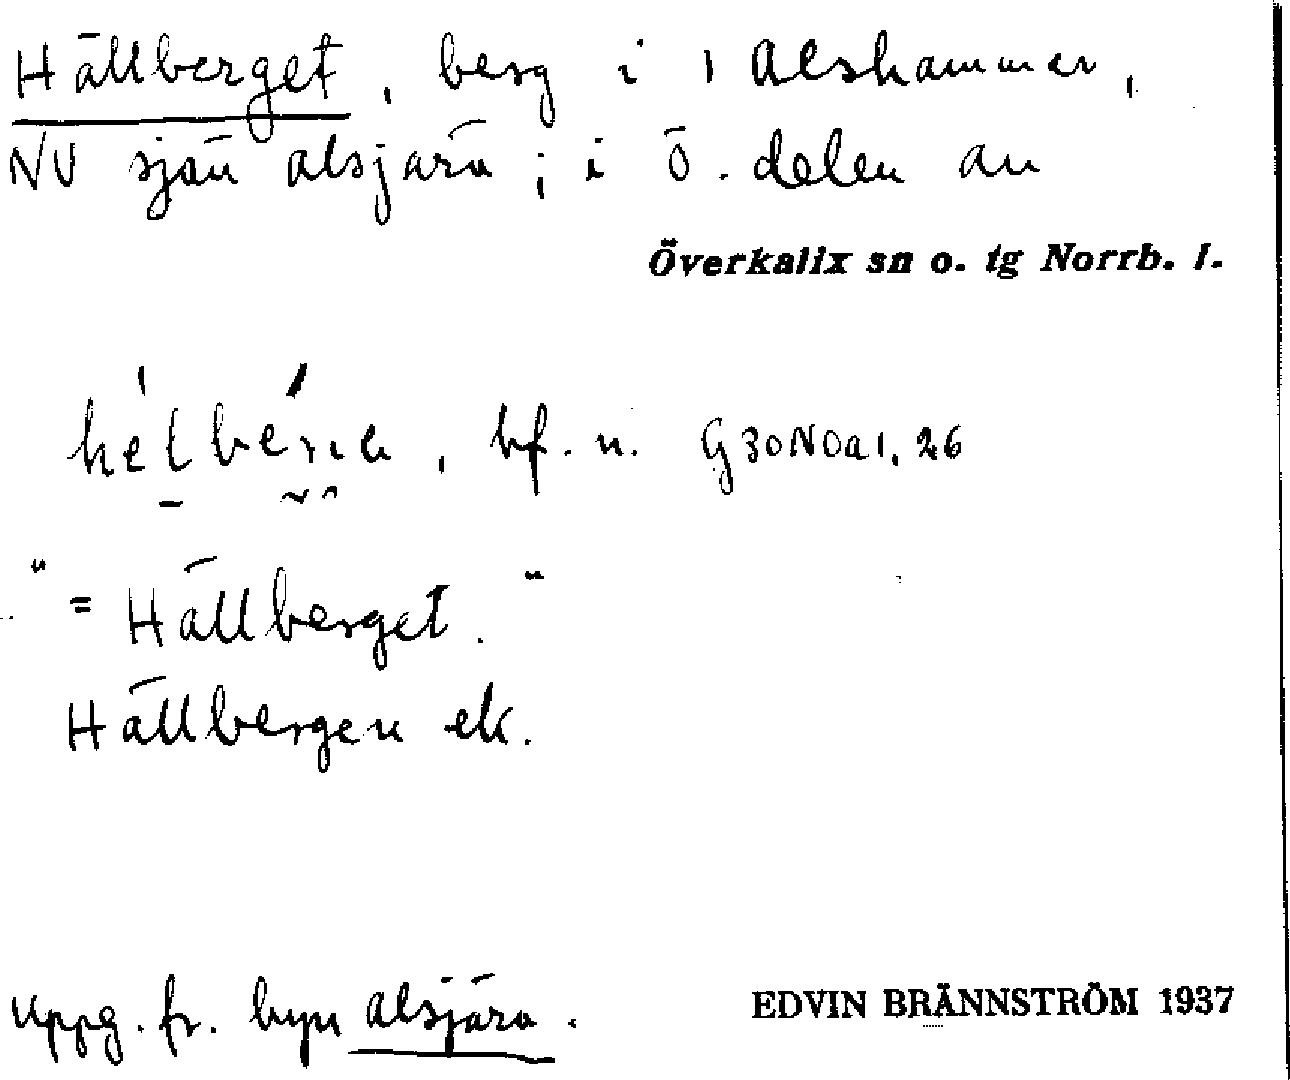 Hällberget, berg i 1 Alshammer,
NV sjön alsjärv; i ö. delen av
Överkalix sn o. tg Norrb. l.
bf. n. G30NOa1, 26
"= Hällberget."
Hällbergen ek.
Uppg. fr. byn alsjärv.
EDVIN BRÄNNSTRÖM 1937